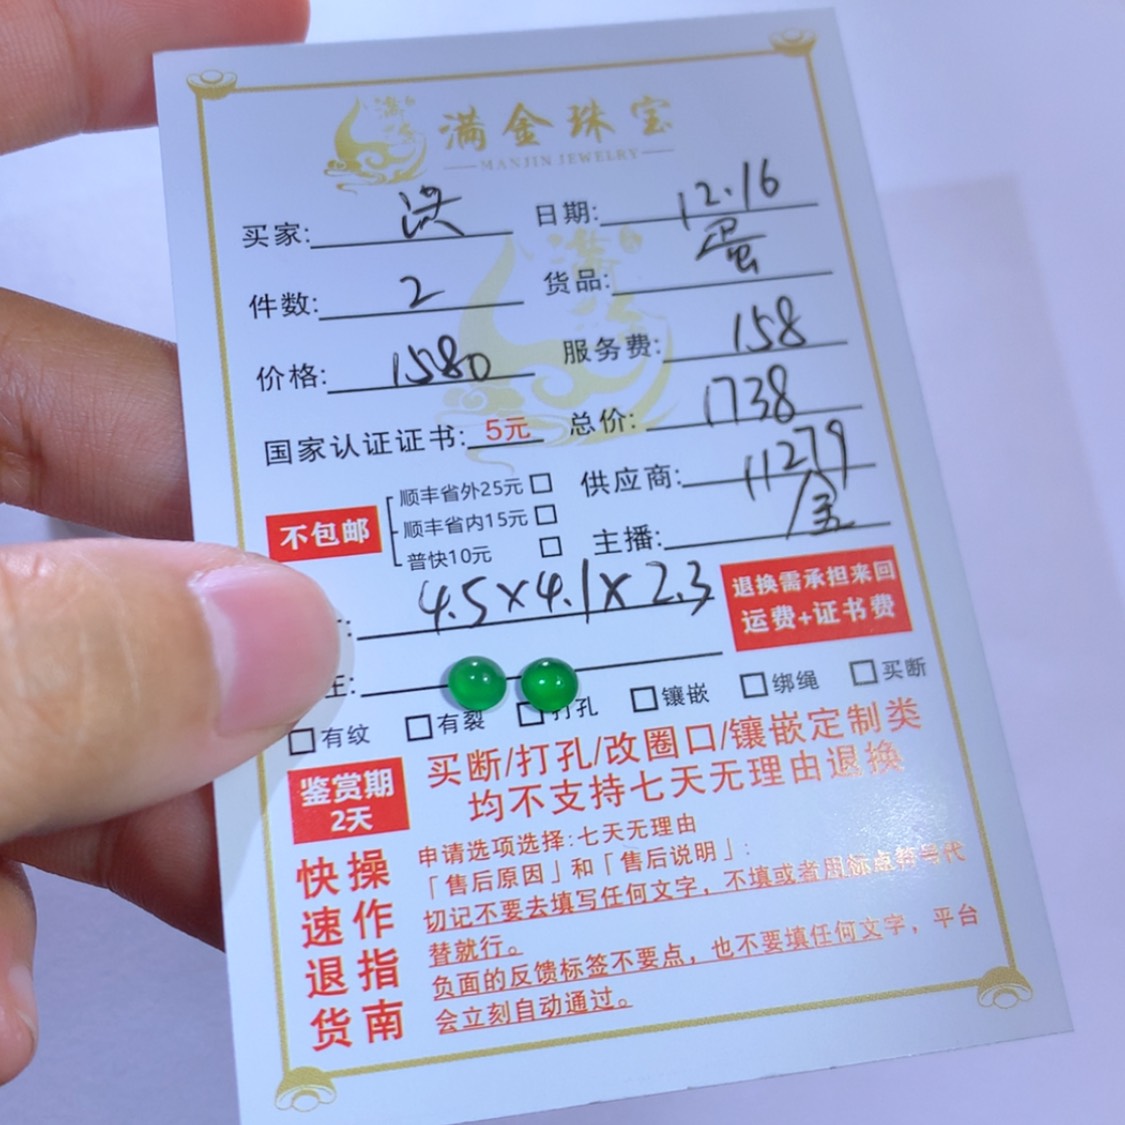 满金珠宝
MANJIN JEWELRY
买家: 洪 日期: 12.16
件数: 2 货品: 蛋
价格: 1580 服务费: 158
国家认证证书: 5元 总价: 1738
不包邮 顺丰省外25元 供应商: 11279
顺丰省内15元
普快10元 主播: 金
4.5×4.1×2.3
退换需承担来回
运费+证书费
有纹 有裂 打孔 镶嵌 绑绳 买断
鉴赏期
2天
买断/打孔/改圈口/镶嵌定制类
均不支持七天无理由退换
快速退货
操作指南
申请选项选择:七天无理由
「售后原因」和「售后说明」:
切记不要去填写任何文字,不填或者用标点符号代
替就行。
负面的反馈标签不要点,也不要填任何文字,平台
会立刻自动通过。